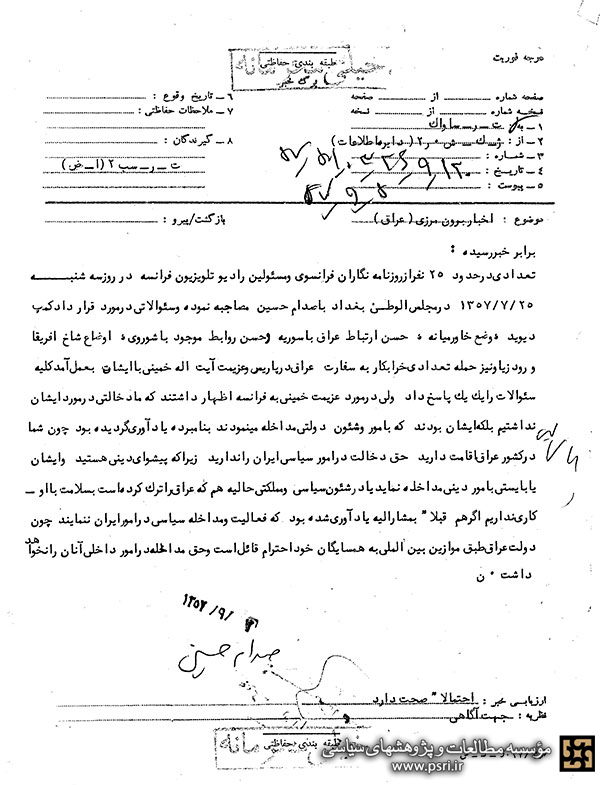 درجه فوریت
طبقه بندی حفاظتی
خیلی محرمانه
صفحه شماره از صفحه
نسخه شماره از نسخه
۱ ـ به : ت ـ ر ـ ساواک
۲ ـ از : ژ ک ـ ش ـ ر۲ ( دایره اطلاعات )
۳ ـ شماره :
۴ ـ تاریخ :
۵ ـ پیوست :
۶ ـ تاریخ وقوع :
۷ ـ ملاحظات حفاظتی :
۸ ـ گیرندگان :
ت ـ ر ـ سب ۲ (ا ـ ض)
موضوع : اخبار برون مرزی ( عراق )
بازگشت / پیرو :
برابر خبر رسیده :
تعدادی در حدود ۲۵ نفر از روزنامه نگاران فرانسوی ومسئولین رادیو تلویزیون فرانسه در روز سه شنبه
۱۳۵۷/۷/۲۵ در مجلس الوطنی بغداد باصدام حسین مصاحبه نموده وسئوالاتی در مورد قرار داد کمپ
دیوید ه وضع خاورمیانه ه حسن ارتباط عراق باسوریه وحسن روابط موجود باشوروی ه اوضاع شاخ افریقا
و رودزیا ونیز حمله تعدادی خرابکار به سفارت عراق در پاریس وعزیمت آیت اله خمینی با ایشان بعمل آمد کلیه
سئوالات را یک یک پاسخ داد ولی در مورد عزیمت خمینی به فرانسه اظهار داشتند که ما دخالتی در مورد ایشان
نداشتیم بلکه ایشان بودند که بامور وشئون دولتی مداخله مینمودند بنامبرده یاد آوری گردیده بود چون شما
در کشور عراق اقامت دارید حق دخالت در امور سیاسی ایران را ندارید زیرا که پیشوای دینی هستید وایشان
یا بایستی بامور دینی مداخله نماید یا در شئون سیاسی ومملکتی حالیه هم که عراق را ترک کرده است بسلامت با او ـ
کاری نداریم اگر هم قبلا" بمشارالیه یاد آوری شده بود که فعالیت ومداخله سیاسی در امور ایران ننمایند چون
دولت عراق طبق موازین بین المللی به همسایگان خود احترام قائل است وحق مداخله در امور داخلی آنان را نخواهد
داشت . ن
صدام حسین
ارزیابی خبر : احتمالا" صحت دارد
نظریه : جهت آگاهی
طبقه بندی حفاظتی
مؤسسه مطالعات و پژوهشهای سیاسی
www.psri.ir